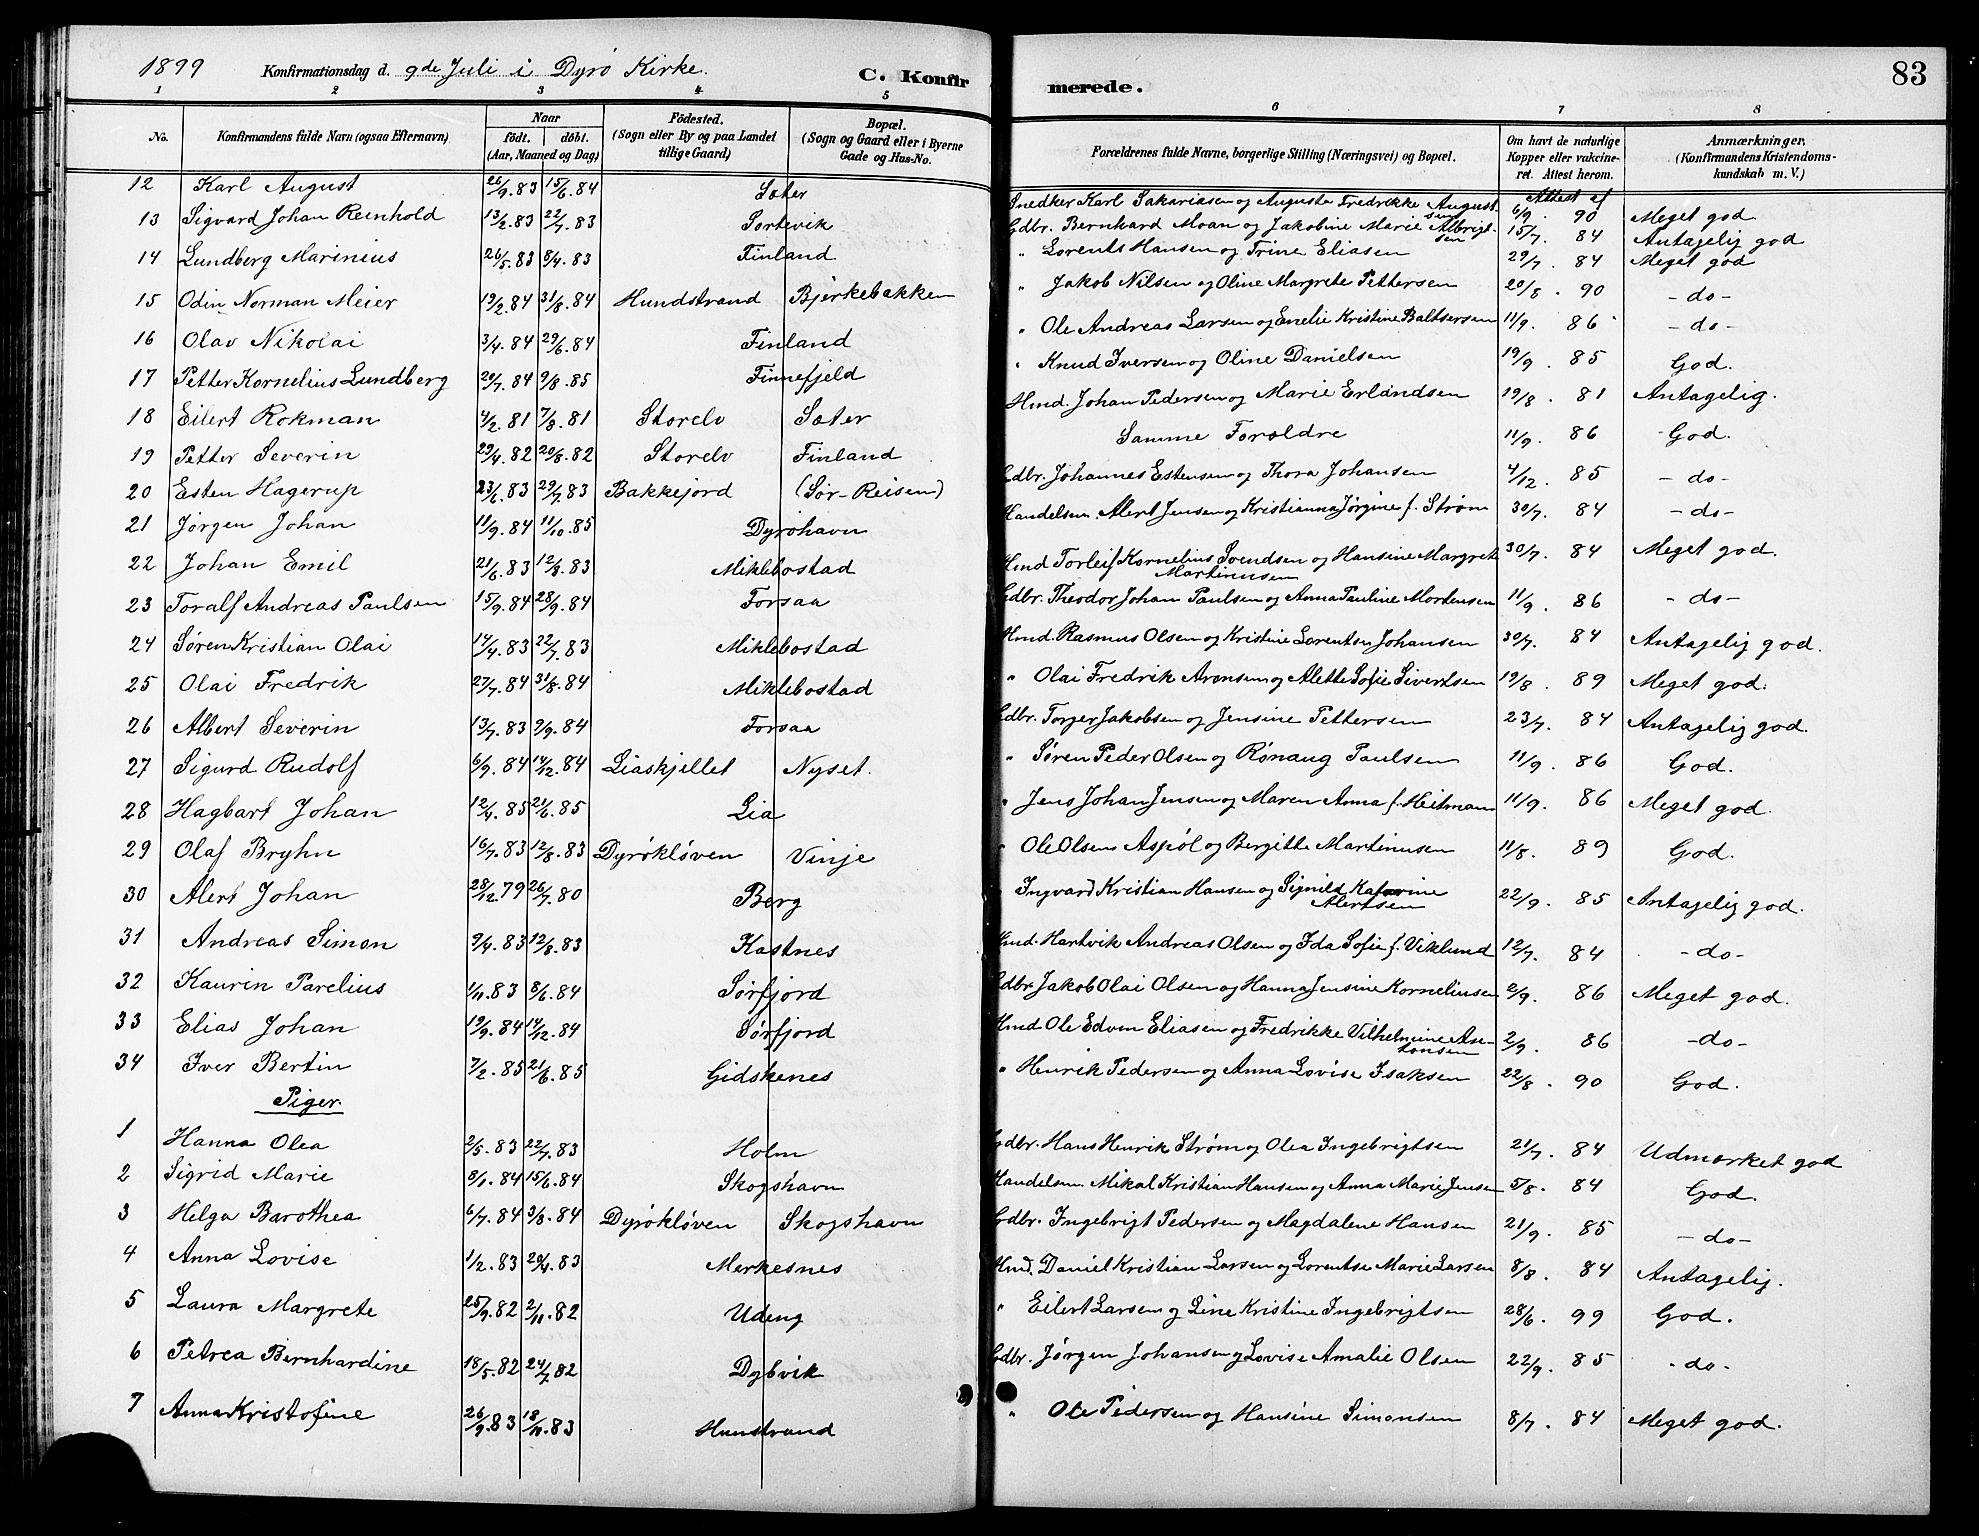 1899 Konfirmationsdag d. 9de Juli i Dyrø Kirke. C. Konfirmerede. 83
1 2 3 4 5 6 7 8
No. Konfirmandens fulde Navn (ogsaa Efternavn) Naar født. døbt. (Aar, Maaned og Dag) Fødested. (Sogn eller By og paa Landet tillige Gaard) Bopæl. (Sogn og Gaard eller i Byerne Gade og Hus-No. Forældrenes fulde Navne, borgerlige Stilling (Næringsvei) og Bopæl. Om havt de naturlige Kopper eller vakcineret. Attest herom. Anmærkninger. (Konfirmandens Kristendomskundskab m. V.)
12 Karl August 26/9.83 15/6.84 Sæter Snedker Karl Sakariasen og Augusta Fredrikke Augustsen Attest af 6/9. 90 Meget god
13 Sigvard Johan Reinhold 13/2.83 22/7.83 Sortevik Gdbr. Bernhard Moan og Jakobine Marie Albrigtsen 15/7. 84 Antagelig god
14 Lundberg Marinius 26/5.83 8/4.83 Finland " Lorents Hansen og Trine Eliasen 29/7. 84 Meget god
15 Odin Norman Meier 19/2.84 31/8.84 Hundstrand Bjerkebakken " Jakob Nilsen og Oline Margrete Pettersen 20/8. 90 - do -
16 Olav Nikolai 3/4.84 29/6.84 Finland " Ole Andreas Larsen og Enelie Kristine Baltsersen 11/9. 86 - do -
17 Petter Kornelius Lundberg 20/7.84 9/8.85 Finnefjeld " Knud Iversen og Oline Danielsen 19/9. 85 God.
18 Eilert Rokman 4/2.81 7/8.81 Storelv Sæter Hmd. Johan Pedersen og Marie Erlandsen 19/8. 81 Antagelig.
19 Petter Severin 29/4.82 20/8.82 Storelv Finland Samme Forældre 11/9. 86 God.
20 Esten Hagerup 23/6.83 29/7.83 Bakkejord (Sør-Reisen) Gdbr. Johannes Estensen og Thora Johansen 4/12. 85 - do -
21 Jørgen Johan 11/9.84 11/10.85 Dyrøhavn Handelsm. Alert Jensen og Kristianna Jørgine f. Strøm 30/7. 84 - do -
22 Johan Emil 21/6.83 12/8.83 Miklebostad Hmd Torleif Kornelius Svendsen og Hansine Margrete Martinusen 30/7. 84 Meget god.
23 Toralf Andreas Paulsen 15/9.84 28/9.84 Forsaa Gdbr. Theodor Johan Paulsen og Anna Pauline Mortensen 11/9. 86 - do -
24 Søren Kristian Olai 14/4.83 22/7.83 Miklebostad Hmd. Rasmus Olsen og Kristine Lorentse Johansen 30/7. 84 Antagelig god.
25 Olai Fredrik 27/7.84 31/8.84 Miklebostad " Olai Fredrik Aronsen og Alette Sofie Sivertsen 19/8. 89 Meget god.
26 Albert Severin 13/7.83 9/9.84 Forsaa Gdbr. Torger Jakobsen og Jensine Pettersen 23/7. 84 Antagelig god.
27 Sigurd Rudolf 6/9.84 14/12.84 Liaskjellet Nyset. " Søren Peder Olsen og Rønaug Paulsen 11/9. 86 God.
28 Hagbart Johan 12/4.85 21/6.85 Lia " Jens Johan Jensen og Maren Anna f. Heitman 11/9. 86 Meget god.
29 Olaf Bryhn 16/7.83 12/8.83 Dyrøkløven Vinje " Ole Olsens Aspøl og Bergitte Martinusen 11/8. 89 God.
30 Alert Johan 28/12.79 26/7.80 Berg " Ingvard Kristian Hansen og Signild Katrine Alertsen 22/9. 85 Antagelig god.
31 Andreas Simon 9/4.83 12/8.83 Kastnes Hmd. Hartvik Andreas Olsen og Ida Sofie f. Viklund 12/7. 84 - do -
32 Kaurin Parelius 1/11.83 8/6.84 Sørfjord Gdbr Jakob Olai Olsen og Hanna Jensine Korneliusen 2/9. 86 Meget god.
33 Elias Johan 19/9.84 14/12.84 Sørfjord Hmd Ole Edven Eliasen og Fredrikke Vilhelmine Antonsen 2/9. 86 - do -
34 Iver Bertin 7/2.85 21/6.85 Gidskenes " Henrik Pedersen og Anna Lovise Isaksen 22/8. 90 God.
Piger.
1 Hanna Olea 2/5.83 22/7.83 Holm Gdbr. Hans Henrik Strøm og Olea Ingebrigtsen 21/7. 84 Udmærket god
2 Sigrid Marie 8/1.84 15/6.84 Skogshavn Handelsm. Mikal Kristian Hansen og Anna Marie Jensen 5/8. 84 God.
3 Helga Barothea 6/7.84 3/8.84 Dyrøkløven Skogshavn Gdbr. Ingebrigt Pedersen og Magdalene Hansen 21/9. 85 - do -
4 Anna Lovise 1/2.83 20/4.83 Merkesnes Hmd. Daniel Kristian Larsen og Lorentse Marie Larsen 8/8. 84 Antagelig.
5 Laura Margrete 25/9.82 2/11.82 Udeng " Eilert Larsen og Line Kristine Ingebrigtsen 28/6. 99 God.
6 Petrea Bernhardine 18/5.82 24/7.82 Dybvik Gdbr. Jørgen Johansen og Lovise Amalie Olsen 22/9. 85 - do -
7 Anna Kristofine 26/9.83 18/11.83 Hunstrand " Ole Pedersen og Hansine Simonsen 8/7. 84 Meget god.